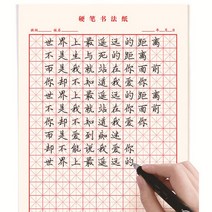 硬笔书法纸
世界上最遥远的距离
不是生与死的距离
而是我就站在你面前
你却不知道我爱你
世界上最遥远的距离
不是我就站在你面前
你却不知道我爱你
而是爱到痴迷
却不能说我爱你
世界上最遥远的